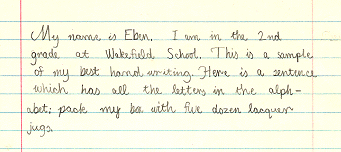 My name is Eben. I am in the 2nd
grade at Wakefield School. This is a sample
of my best hand writing. Here is a sentence
which has all the letters in the alph-
abet; pack my box with five dozen lacquer
jugs.